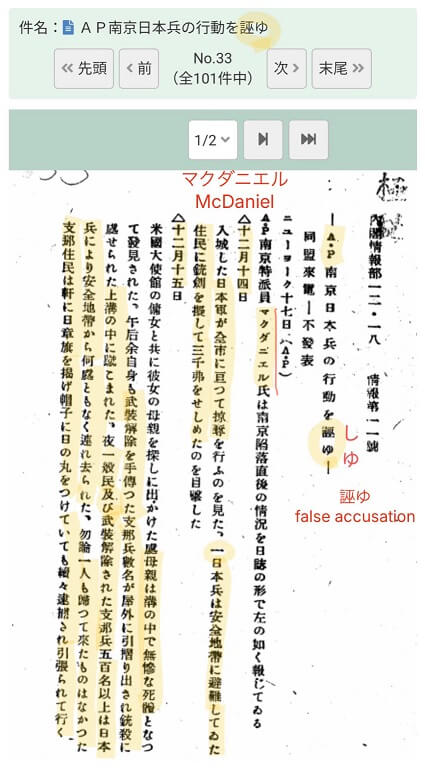 件名：ＡＰ南京日本兵の行動を誣ゆ
先頭
前
No.33
（全101件中）
次
末尾
1/2
マクダニエル
McDaniel
內閣情報部一二・一八 情報第一一號
―Ａ・Ｐ南京日本兵の行動を誣ゆ―
同盟來電―不發表
ニューヨーク十七日（ＡＰ）
ＡＰ南京特派員マクダニエル氏は南京陷落直後の情況を日誌の形で左の如く報じてゐる
△十二月十四日
入城した日本軍が全市に亘つて掠奪を行ふのを見た、一日本兵は安全地帶に避難してゐた
住民に銃劍を擬して三千弗をせしめたのを目擊した
△十二月十五日
米國大使館の傭女と共に彼女の母親を探しに出かけた處母親は溝の中で無慘な死體となつ
て發見された、午后余自身も武裝解除を手傳つた支那兵數名が屋外に引摺り出され銃殺に
處せられた上溝の中に蹴こまれた、夜一般民及び武裝解除された支那兵五百名以上は日本
兵により安全地帶から何處ともなく連れ去られた、勿論一人も歸つて來たものはなかつた
支那住民は軒に日章旗を揭げ帽子に日の丸をつけていても續々逮捕され引張られて行く
しゆ
誣ゆ
false accusation